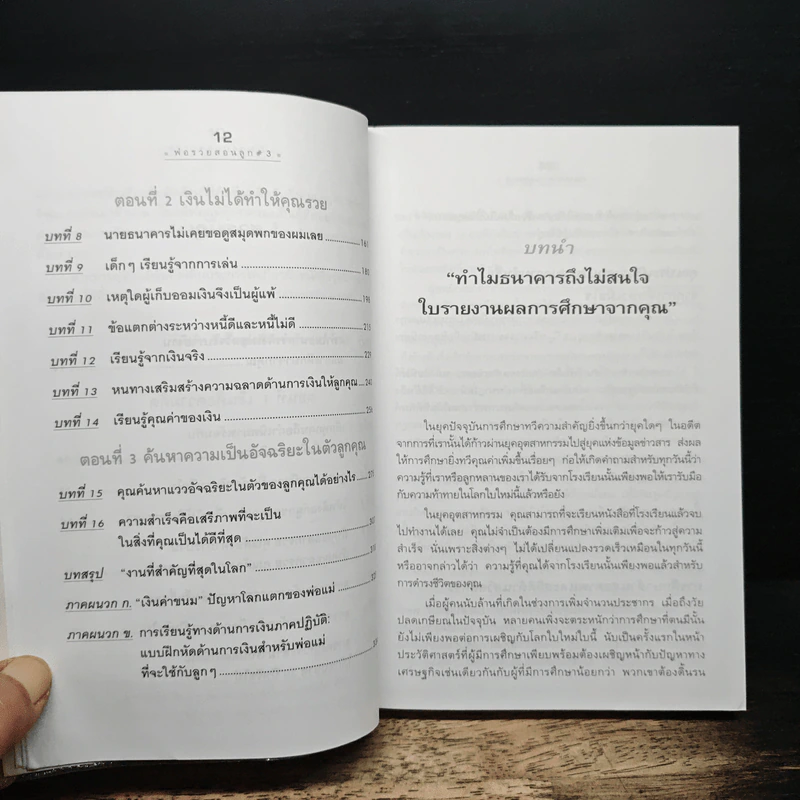 12
พ่อรวยสอนลูก # 3
ตอนที่ 2 เงินไม่ได้ทำให้คุณรวย
บทที่ 8 นายธนาคารไม่เคยขอดูสมุดพกของผมเลย 161
บทที่ 9 เด็กๆ เรียนรู้จากการเล่น 180
บทที่ 10 เหตุใดผู้เก็บออมเงินจึงเป็นผู้แพ้ 198
บทที่ 11 ข้อแตกต่างระหว่างหนี้ดีและหนี้ไม่ดี
บทที่ 12 เรียนรู้จากเงินจริง
บทที่ 13 หนทางเสริมสร้างความฉลาดด้านการเงินให้ลูกคุณ
บทที่ 14 เรียนรู้คุณค่าของเงิน
ตอนที่ 3 ค้นหาความเป็นอัจฉริยะในตัวลูกคุณ
บทที่ 15 คุณค้นหาแววอัจฉริยะในตัวของลูกคุณได้อย่างไร
บทที่ 16 ความสำเร็จคือเสรีภาพที่จะเป็น
ในสิ่งที่คุณเป็นได้ดีที่สุด
บทสรุป “งานที่สำคัญที่สุดในโลก”
ภาคผนวก ก. “เงินค่าขนม” ปัญหาโลกแตกของพ่อแม่
ภาคผนวก ข. การเรียนรู้ทางด้านการเงินภาคปฏิบัติ:
แบบฝึกหัดด้านการเงินสำหรับพ่อแม่
ที่จะใช้กับลูกๆ
บทนำ
“ทำไมธนาคารถึงไม่สนใจ
ใบรายงานผลการศึกษาจากคุณ”
ในยุคปัจจุบันการศึกษาทวีความสำคัญยิ่งขึ้นกว่ายุคใดๆ ในอดีต
จากการที่เรานั้นได้ก้าวผ่านยุคอุตสาหกรรมไปสู่ยุคแห่งข้อมูลข่าวสาร ส่งผล
ให้การศึกษายิ่งทวีคุณค่าเพิ่มขึ้นเรื่อยๆ ก่อให้เกิดคำถามสำหรับทุกวันนี้ว่า
ความรู้ที่เราหรือลูกหลานของเราได้รับจากโรงเรียนนั้นเพียงพอให้เรารับมือ
กับความท้าทายในโลกใบใหม่นี้แล้วหรือยัง
ในยุคอุตสาหกรรม คุณสามารถที่จะเรียนหนังสือที่โรงเรียนแล้วจบ
ไปทำงานได้เลย คุณไม่จำเป็นต้องมีการศึกษาเพิ่มเติมเพื่อจะก้าวสู่ความ
สำเร็จ นั่นเพราะสิ่งต่างๆ ไม่ได้เปลี่ยนแปลงรวดเร็วเหมือนในทุกวันนี้
หรืออาจกล่าวได้ว่า ความรู้ที่คุณได้จากโรงเรียนนั้นเพียงพอแล้วสำหรับ
การดำรงชีวิตของคุณ
เมื่อผู้คนนับล้านที่เกิดในช่วงการเพิ่มจำนวนประชากร เมื่อถึงวัย
ปลดเกษียณในปัจจุบัน หลายคนเพิ่งจะตระหนักว่าการศึกษาที่ตนมีนั้น
ยังไม่เพียงพอต่อการเผชิญกับโลกใบใหม่ใบนี้ นับเป็นครั้งแรกในหน้า
ประวัติศาสตร์ที่ผู้มีการศึกษาเพียบพร้อมต้องเผชิญหน้ากับปัญหาทาง
เศรษฐกิจเช่นเดียวกันกับผู้ที่มีการศึกษาน้อยกว่า พวกเขาต้องดิ้นรน